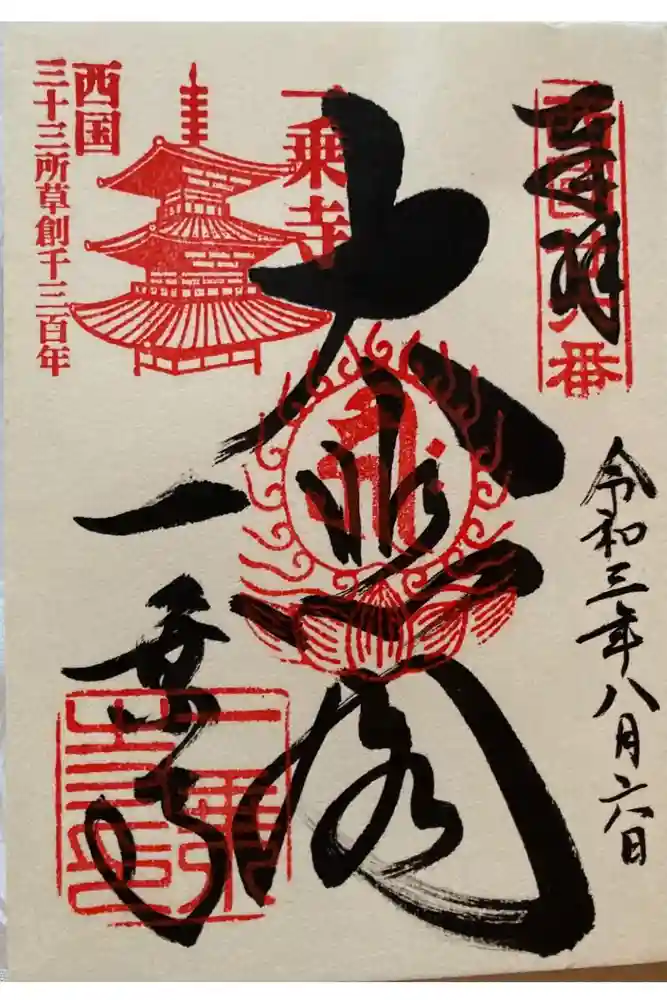 奉拝
令和三年八月六日
大悲閣
一乗寺
一乗寺
西国
三十三所草創千三百年